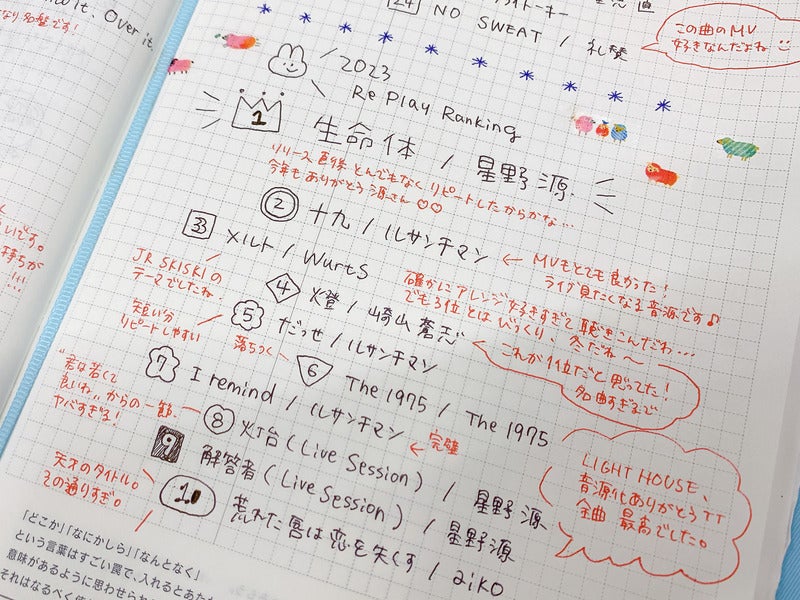 It. Over it.
なり名盤です!
いです。
持ちが
!!!
24
NO SWEAT / 礼賛
この曲のMV
好きなんだよね
2023
Re Play Ranking
1 生命体 / 星野源
リリース直後とんでもなくリピートしたからかな…
今年もありがとう源さん♡♡
2 十九 / ルサンチマン
← MVもとても良かった!
ライブ見たくなる音源です♪
33 メルト / Wurts
JR SKISKIの
テーマでしたね
確かにアレンジ好きすぎて聴きこんだわ…
でも3位とはびっくり、冬だね〜
4 燈 / 崎山蒼志
これが1位だと思ってた!
名曲すぎまで
5 だっせ / ルサンチマン
短い分
リピートしやすい
落ちつく
6 The 1975 / The 1975
7 I remind / ルサンチマン
← 完璧
"君は若くて
良いね"からの一節
ヤバすぎる!
8 灯台 (Live Session) / 星野源
9 解答者 (Live Session) / 星野源
LIGHT HOUSE、
音源化ありがとうTT
全曲 最高でした。
10 荒れた唇は恋を失くす / aiko
天才のタイトル。
その通りすぎ。
「どこか」「なにかしら」「なんとなく」
という言葉はすごい罠で、入れるとあた
意味があるように思わせられ
それはなるべく